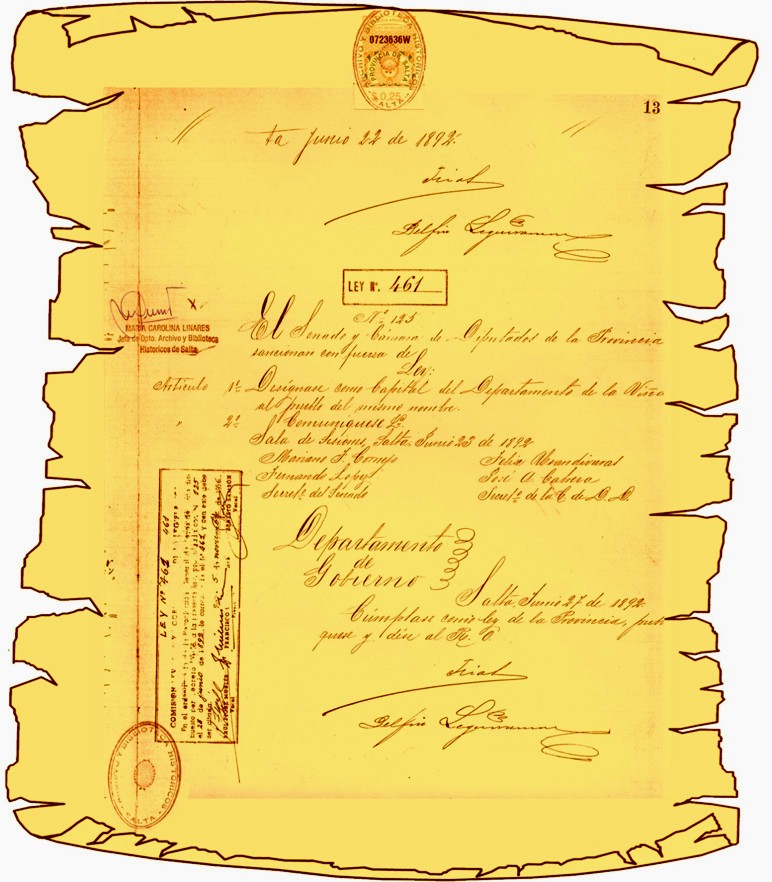 ARCHIVO Y BIBLIOTECA HISTORICOS
0723636W
PROVINCIA DE SALTA
$ 0,25
SALTA
13
ta Junio 22 de 1892.
Frias
Delfin Leguizamon
LEY Nº. 461
Nº 125
El Senado y Cámara de Diputados de la Provincia
sancionan con fuerza de
Ley:
MARIA CAROLINA LINARES
Jefa de Dpto. Archivo y Biblioteca
Historicos de Salta
Artículo 1º Desígnase como Capital del Departamento de la Viña
al pueblo del mismo nombre.
" 2º Comuníquese
Sala de Sesiones, Salta, Junio 23 de 1892
Mariano F. Cornejo
Felix Usandivaras
Fernando Lopez
José A. Cabrera
Secretº. del Senado
Secretº. de la C. de D.D.
Departamento
de
Gobierno
Salta, Junio 27 de 1892
Cúmplase como ley de la Provincia, publí
quese y dése al R. O
Frias
Delfin Leguizamon
LEY Nº 461 461
COMISION
de junio de 1892
5 de noviembre
ROBERTO SAMSON
Vocal
FRANCISCO
ARCHIVO Y BIBLIOTECA HISTORICOS
SALTA